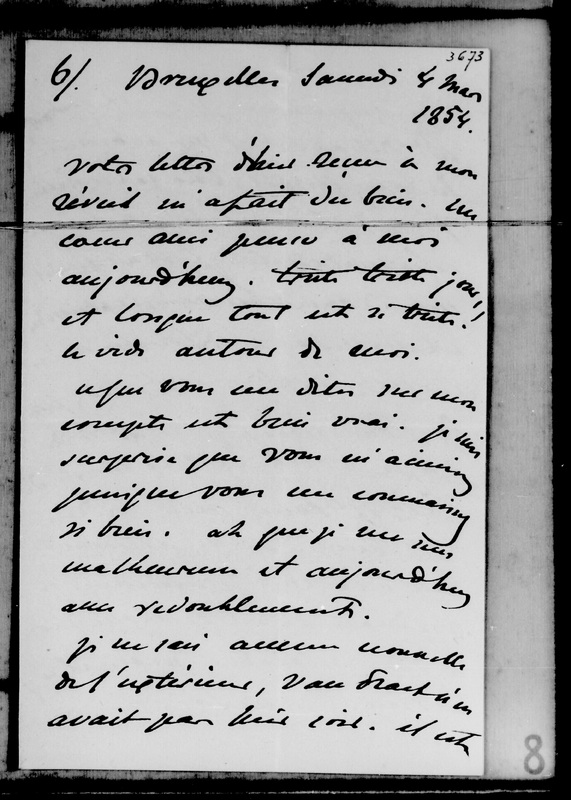 3673
6/. Bruxelles Samedi 4 Mars
1854.
votre lettre d'hier reçue à mon
réveil m'a fait du bien. un
coeur ami pense à moi
aujourd'huy. triste triste jour!
et lorsque tout est si triste!
le vide autour de moi.
que vous me dites sur mon
compte est bien vrai. je suis
surprise que vous m'aimiez
puisque vous me connaissez
si bien. ah que je me sens
malheureuse et aujourd'huy
avec redoublement.
je ne sais aucune nouvelle
de l'extérieur, Van Praet n'en
avait pas hier soir. il est
8